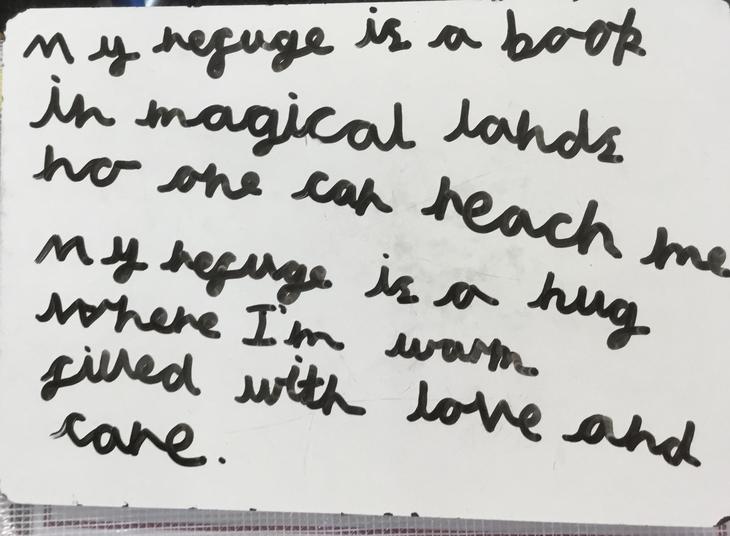 My refuge is a book
in magical lands
no one can reach me
My refuge is a hug
where I'm warm
filled with love and
care.